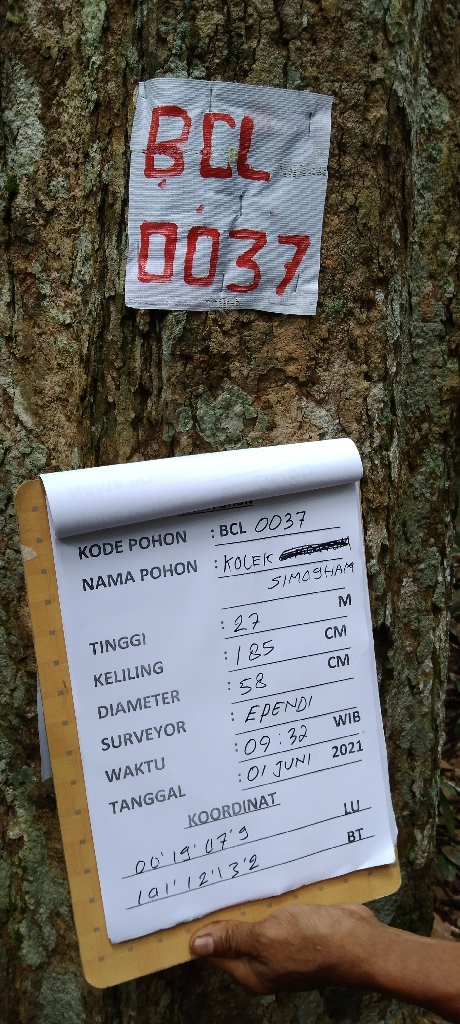 BCL
0037
KODE POHON : BCL 0037
NAMA POHON : KOLEK
SIMOGHAM
TINGGI : 27 M
KELILING : 185 CM
DIAMETER : 58 CM
SURVEYOR : EPENDI
WAKTU : 09:32 WIB
TANGGAL : 01 JUNI 2021
KOORDINAT
00'19'07'9 LU
101'12'13'2 BT